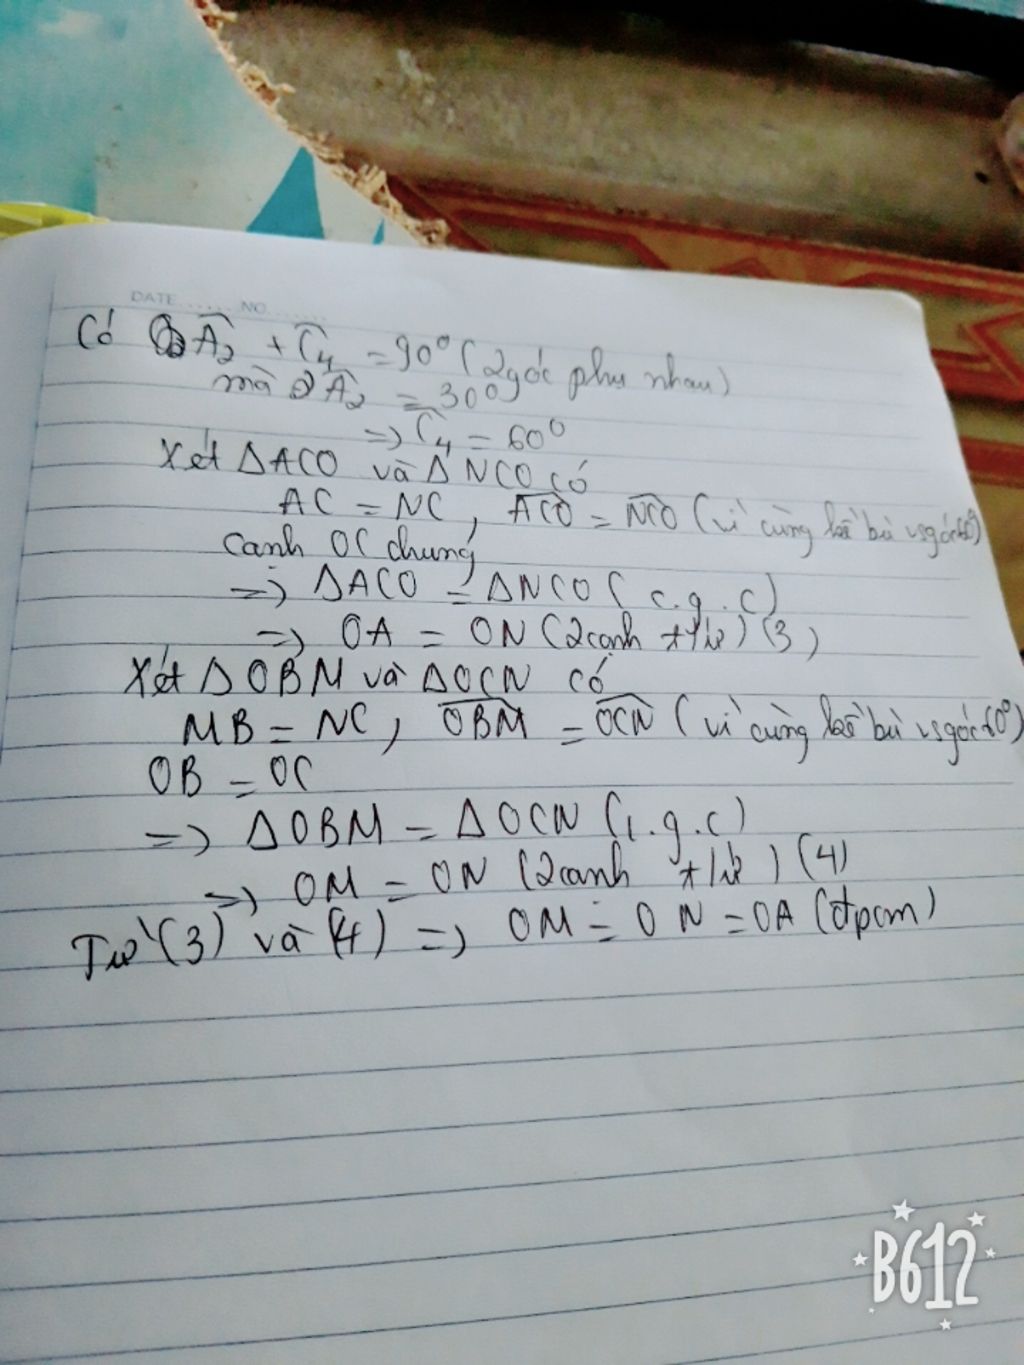 DATE ...... NO. ......
Có Â₂ + Ĉ₄ = 90° (2 góc phụ nhau)
mà Â₂ = 30°
=> Ĉ₄ = 60°
Xét ΔACO và ΔNCO có
AC = NC, ACO = NCO (vì cùng kề bù vs góc 60°)
cạnh OC chung
=> ΔACO = ΔNCO (c.g.c)
=> OA = ON (2 cạnh t/ứ) (3)
Xét ΔOBM và ΔOCN có
MB = NC, OBM = OCN (vì cùng kề bù vs góc 60°)
OB = OC
=> ΔOBM = ΔOCN (c.g.c)
=> OM = ON (2 cạnh t/ứ) (4)
Từ (3) và (4) => OM = ON = OA (đpcm)
B612